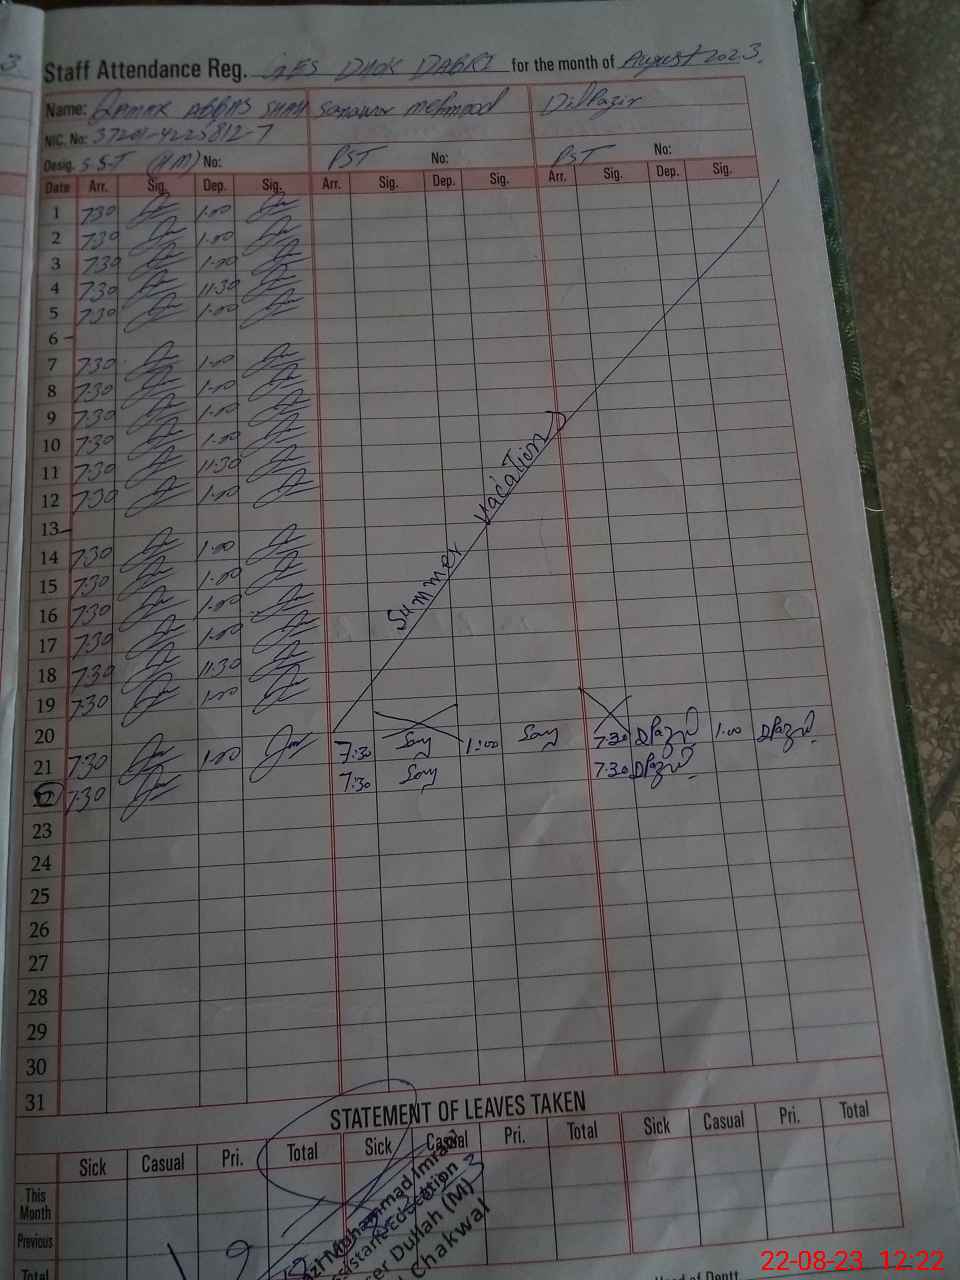 3
Staff Attendance Reg. GES DHOK DABRI for the month of August 2023.
Name: QAMAR ABBAS SHAH Sanawar Mehmood Dilpazir
NIC. No: 37201-4225812-7
Desig. S.S.T (HM) No: PST No: PST No:
Date Arr. Sig. Dep. Sig. Arr. Sig. Dep. Sig. Arr. Sig. Dep. Sig.
1 7:30 1:00
2 7:30 1:00
3 7:30 1:00
4 7:30 11:30
5 7:30 1:00
6 -
7 7:30 1:00
8 7:30 1:00
9 7:30 1:00
10 7:30 1:00
11 7:30 11:30
12 7:30 1:00
13 -
14 7:30 1:00
15 7:30 1:00
16 7:30 1:00
17 7:30 1:00
18 7:30 11:30
19 7:30 1:00
Summer Vacation
20
21 7:30 1:00 7:30 1:00 7:30 DPazir 1:00 DPazir
22 7:30 7:30 7:30 DPazir
23
24
25
26
27
28
29
30
31
STATEMENT OF LEAVES TAKEN
Sick Casual Pri. Total Sick Casual Pri. Total Sick Casual Pri. Total
This Month
Previous
Total
Muhammad Imran
Education
Dullah (M)
Chakwal
Head of Deptt
22-08-23 12:22